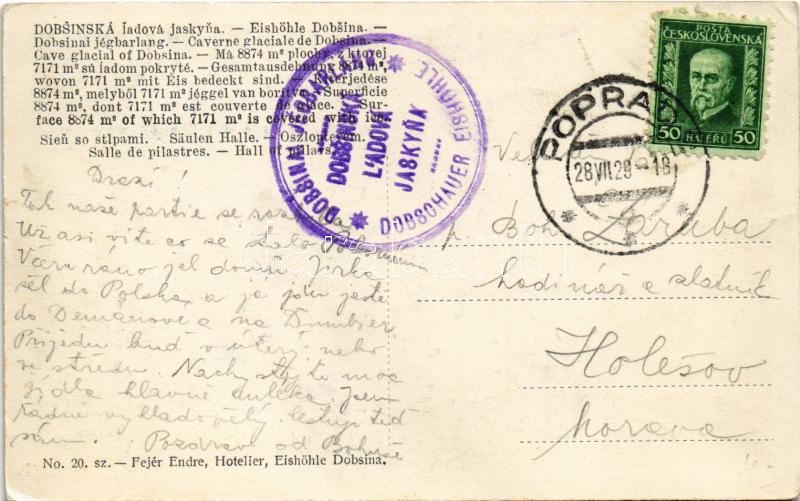 DOBŠINSKÁ ľadová jaskyňa. — Eishöhle Dobšina. —
Dobsinai jégbarlang. — Caverne glaciale de Dobsina. —
Cave glacial of Dobsina. — Má 8874 m² plochy, z ktorej
7171 m² sú ľadom pokryté. — Gesamtausdehnung 8874 m²,
wovon 7171 m² mit Eis bedeckt sind. — Kiterjedése
8874 m², melyből 7171 m² jéggel van borítva. — Superficie
8874 m², dont 7171 m² est couverte de glace. — Sur-
face 8874 m² of which 7171 m² is covered with ice.
Sieň so stlpami. — Säulen Halle. — Oszlopterem.
Salle de pilastres. — Hall of pillars.
DOBŠINAI
DOBŠINSKÁ
ĽADOVÁ
JASKYŇA
DOBSCHAUER EISHÖHLE
POŠTA
ČESKOSLOVENSKÁ
50 HALÉŘŮ 50
POPRAD
28.VII.29-18
Drazí!
Tak naše partie se
Už asi víte co se stalo
Včera ráno jel domů Jirka
šel do Polska, a já jdu ještě
do Demänové a na Ďumbier
Přijedu buď v úterý nebo
ve středu. Nachystejte moc
jídla hlavně jsem
řádně vyhladovělý
sám. Pozdrav od
p. Boh. Zaruba
hodinář a zlatník
Holešov
Morava
No. 20. sz. — Fejér Endre, Hotelier, Eishöhle Dobsina.